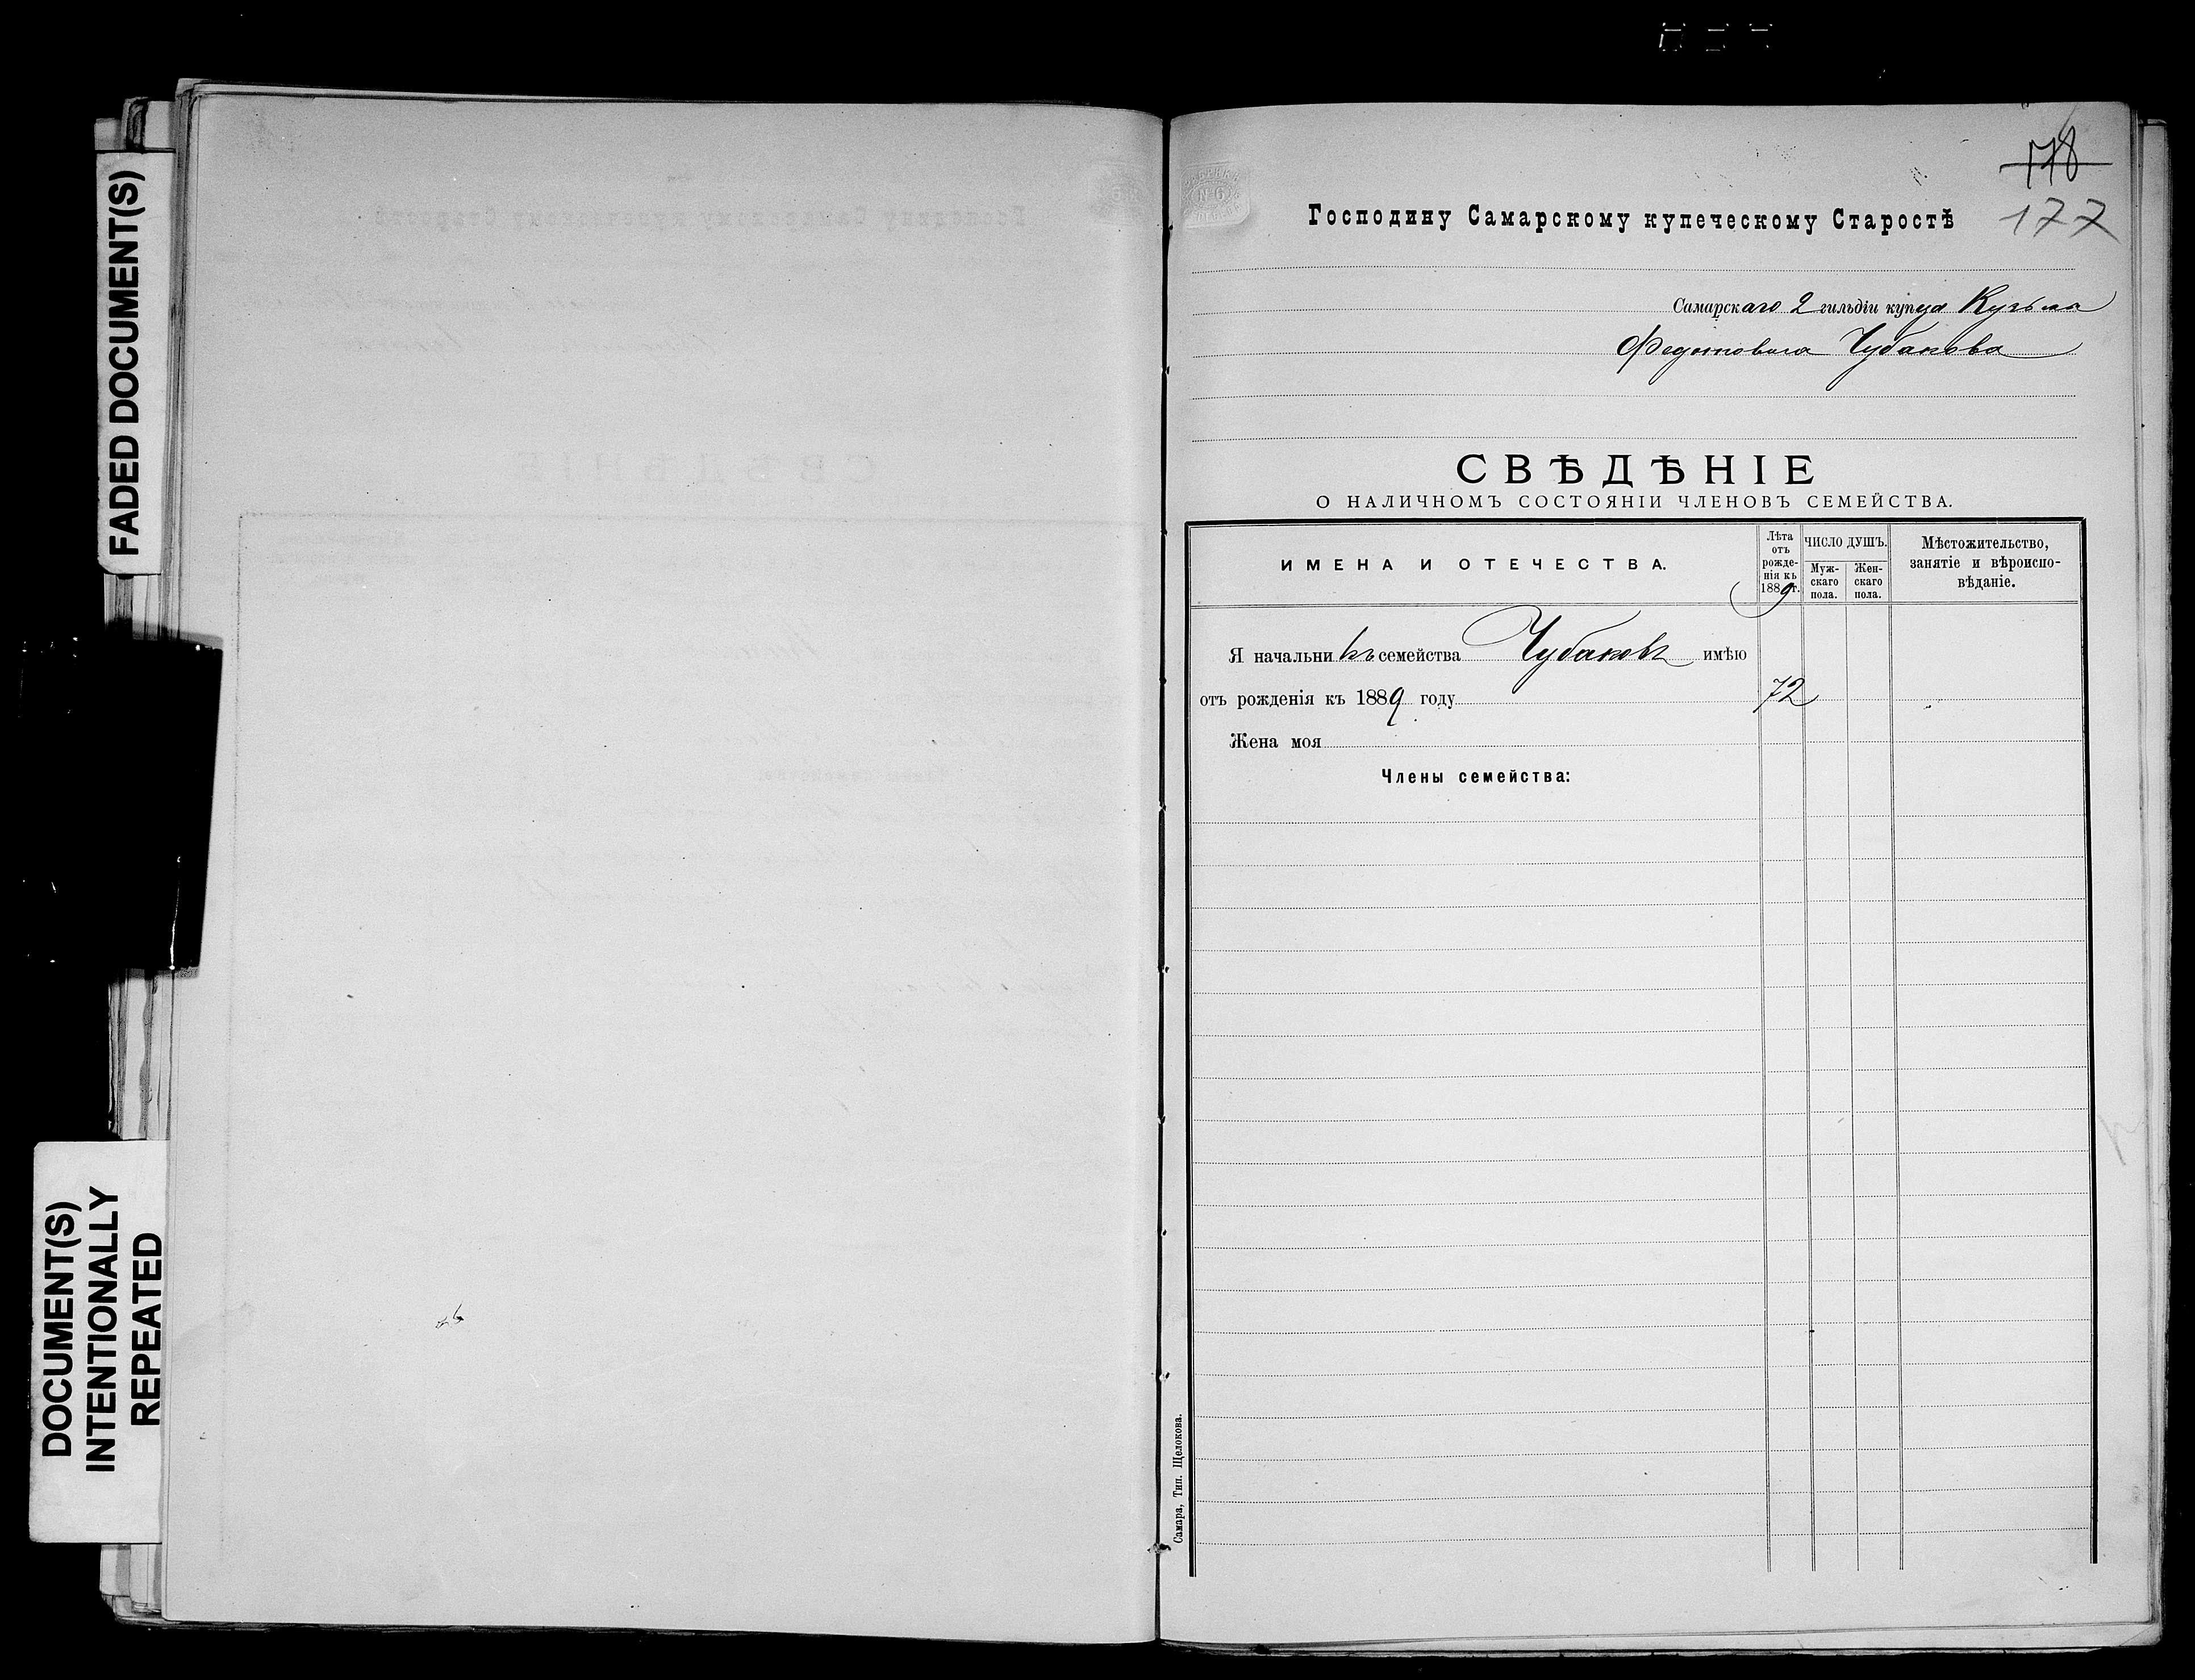 FADED DOCUMENT(S)
DOCUMENT(S)
INTENTIONALLY
REPEATED
178
177
Господину Самарскому купеческому Старостѣ
Самарскаго 2 гильдіи купца Кузьма
Федотовича Чубакова
СВѢДѢНІЕ
О НАЛИЧНОМЪ СОСТОЯНІИ ЧЛЕНОВЪ СЕМЕЙСТВА.
ИМЕНА И ОТЕЧЕСТВА.
Лѣта
отъ
рожде-
нія къ
1889 г.
ЧИСЛО ДУШЪ.
Муж-
скаго
пола.
Жен-
скаго
пола.
Мѣстожительство,
занятіе и вѣроиспо-
вѣданіе.
Я начальникъ семейства Чубаковъ имѣю
отъ рожденія къ 1889 году 72
Жена моя
Члены семейства:
Самара, Тип. Щелокова.